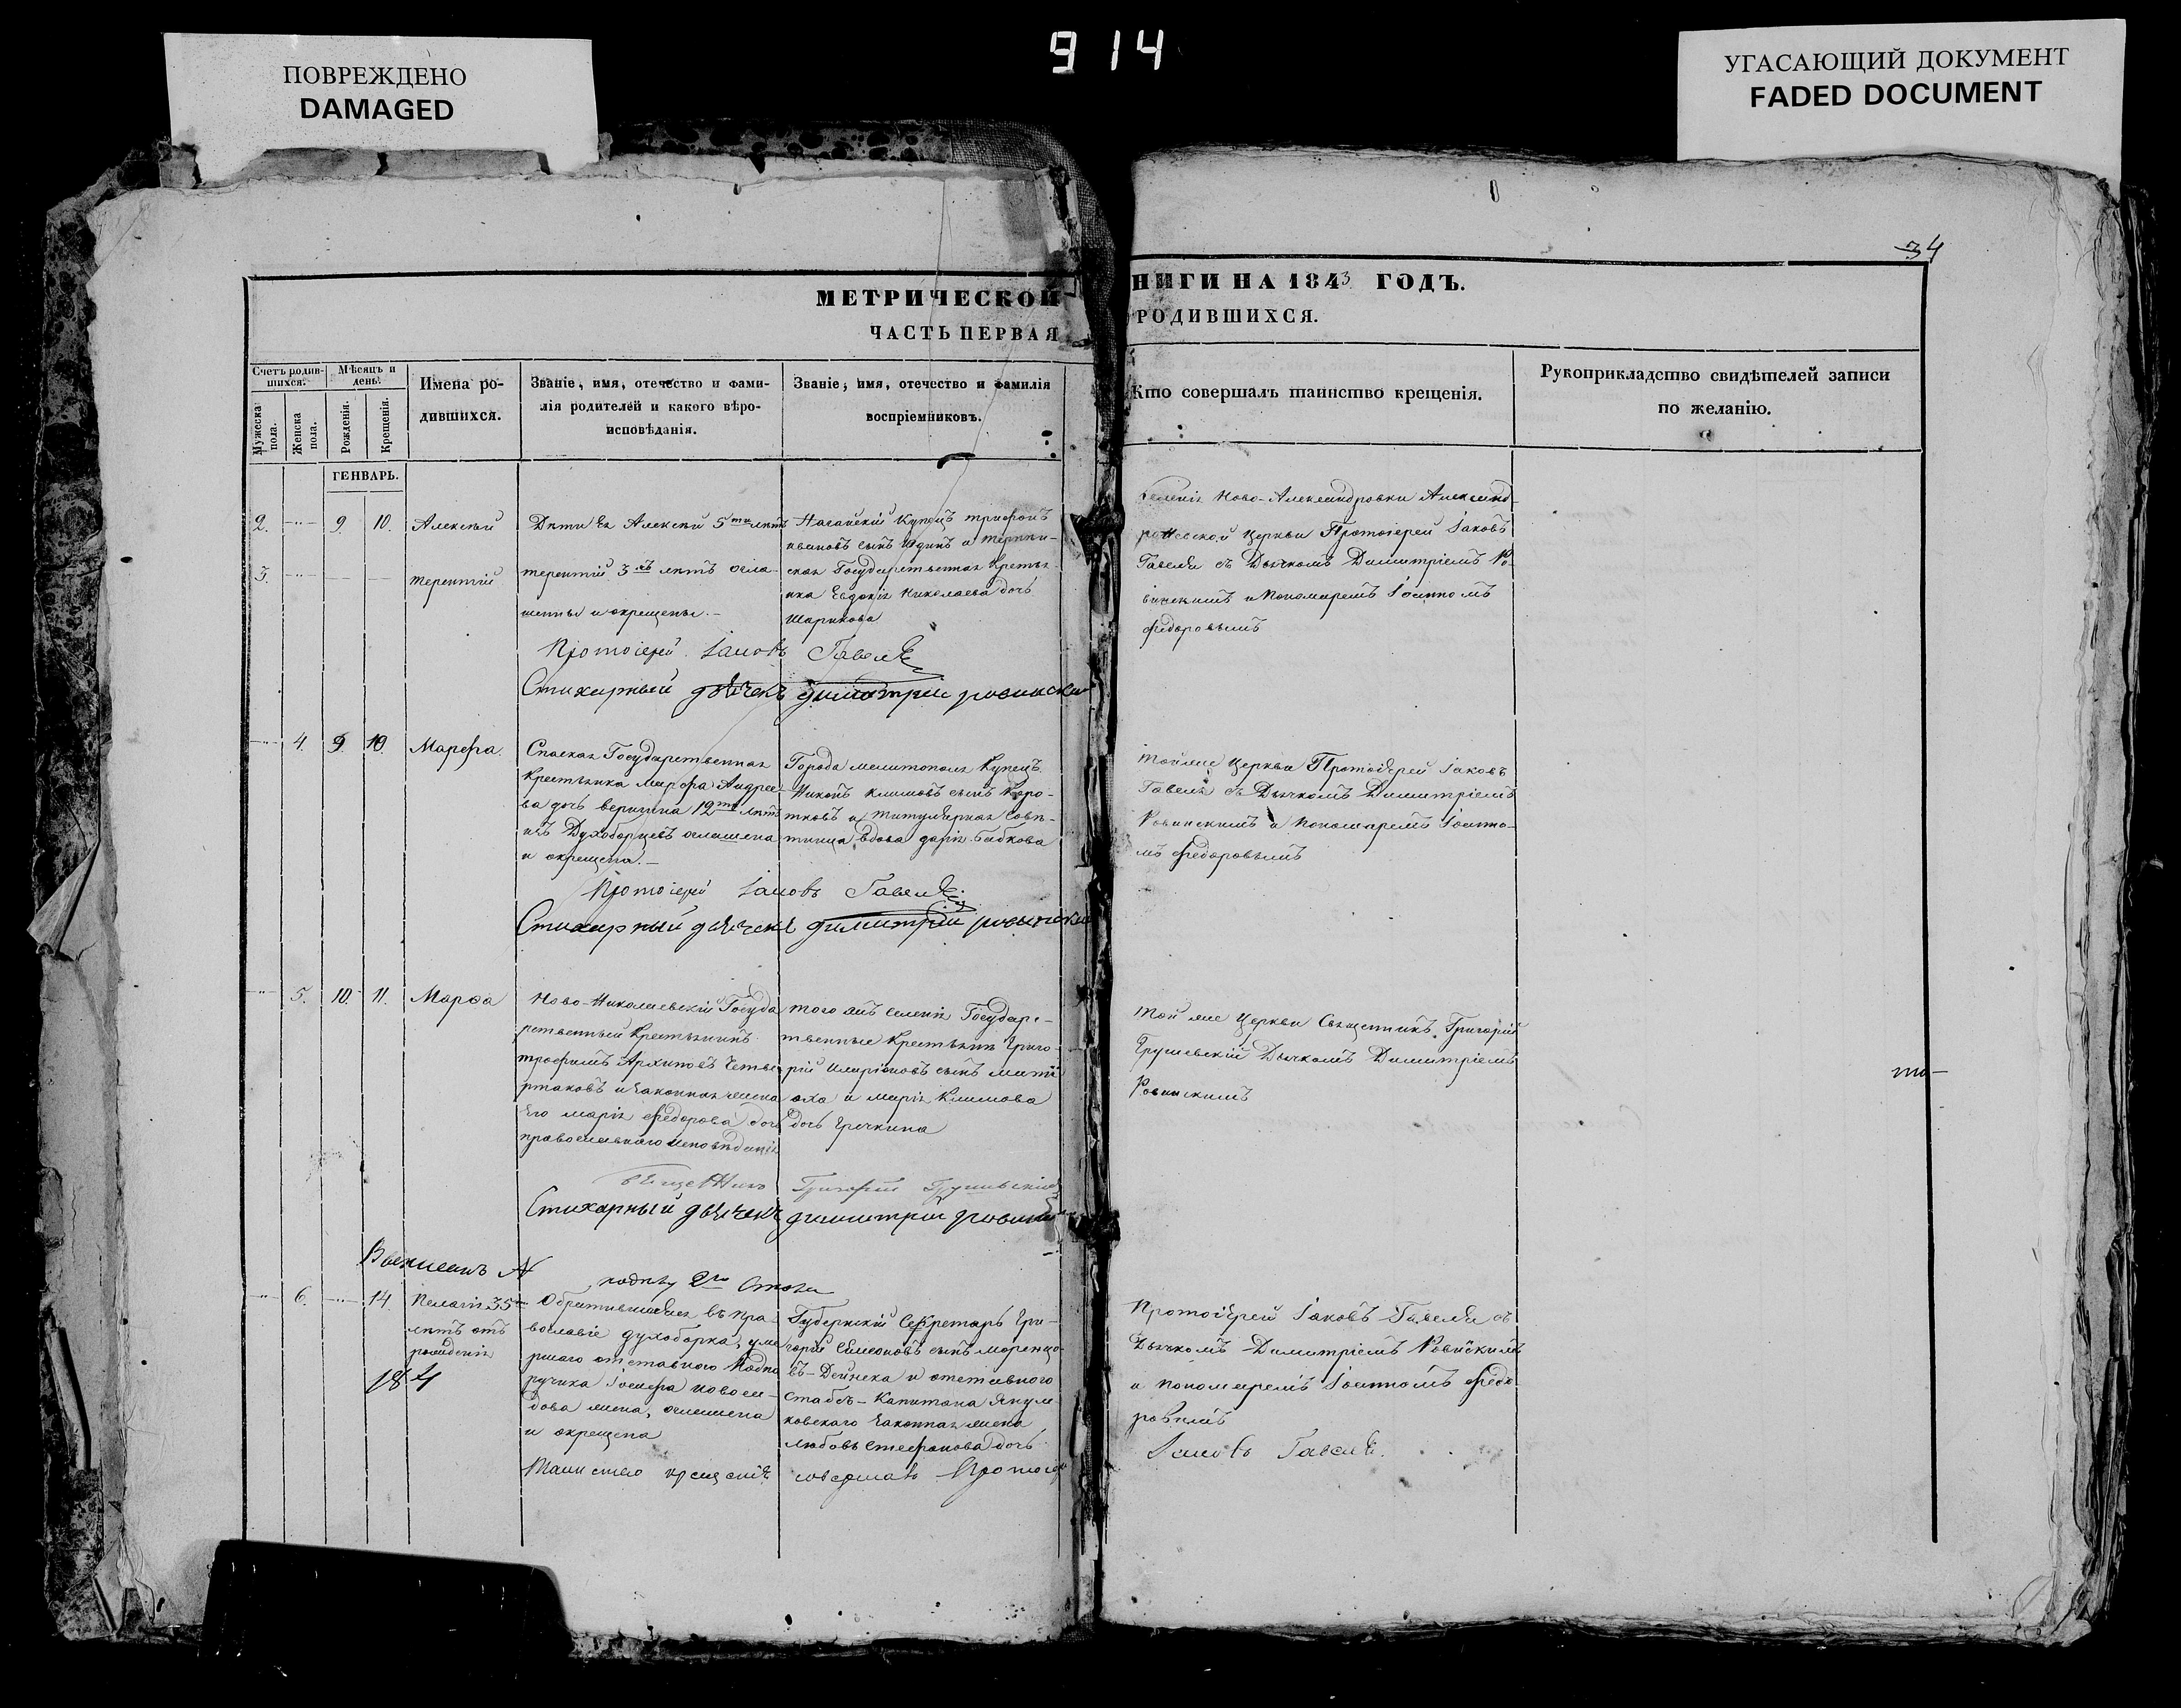 914
ПОВРЕЖДЕНО
DAMAGED
УГАСАЮЩИЙ ДОКУМЕНТ
FADED DOCUMENT
34
МЕТРИЧЕСКОЙ
НИГИ НА 1843 ГОДЪ.
ЧАСТЬ ПЕРВАЯ
РОДИВШИХСЯ.
Счетъ родив-
шихся.
Мужеска
пола.
Женска
пола.
Мѣсяцъ и
день.
Рожденія.
Крещенія.
Имена ро-
дившихся.
Званіе, имя, отечество и фами-
лія родителей и какого вѣро-
исповѣданія.
Званіе, имя, отечество и фамилія
воспріемниковъ.
Кто совершалъ таинство крещенія.
Рукоприкладство свидѣтелей записи
по желанію.
ГЕНВАРЬ.
2. 9. 10. Алексѣй
3. Терентій
Дѣти Ея Алексѣй 5ти лѣтъ
Терентій 3хъ лѣтъ огла-
шены и окрещены.
Нагайскій Купецъ Трифонъ
Ивановъ сынъ Юдинъ и Терпи-
ская Государственная Кресть-
нка Евдокія Николаева дочь
Шарикова
селенія Ново-Александровки Александ-
ровской церкви Протоіерей Іаковъ
Гавеля съ Дьячкомъ Димитріемъ Ро-
винскимъ и Пономаремъ Іоанномъ
Федоровымъ
Протоіерей Іаковъ Гавеля
Стихарный дьячекъ Димитрій Ровински
4. 9. 10. Марфа.
Спаская Государственная
Крестьянка Марфа Андрее-
ва дочь Верищина 12ти лѣтъ
изъ Духоборцевъ оглашена
и окрещена.—
Города Мелитополя Купецъ
Никонъ Климовъ сынъ Коро-
тковъ и Титулярная Совѣ-
тница вдова Дарія Бабкова
Той же церкви Протоіерей Іаковъ
Гавеля съ Дьячкомъ Димитріемъ
Ровинскимъ и Пономаремъ Іоанно-
мъ Федоровымъ
Протоіерей Іаковъ Гавеля.
Стихарный дьячекъ Димитрій Ровински
5. 10. 11. Марѳа
Ново-Николаевскій Государ
рственный Крестьянинъ
Трофимъ Архиповъ Четве
ртаковъ и Законная жена
Его Марія Федорова дочь
православнаго исповѣданія
того жъ селенія Государс-
твенные Крестьяне Григо-
рій Иларіоновъ сынъ
и Марія Климова
дочь Гречкина
Той же церкви Священникъ Григорій
Грушевскій Дьячкомъ Димитріемъ
Ровинскимъ
Священникъ Григорій Грушевскій
Стихарный дьячекъ Димитрій Ровин
6. 14. Пелагія 35
лѣтъ отъ
рожденія
184
Обратившаяся въ пра-
вославіе духоборка, уме
ршаго отставного Подпо
ручика Іосифа Новоси-
дова жена, оглашена
и окрещена
Губернскій Секретарь Гри-
горій Симеоновъ сынъ
Дейнека и отставного
Стабсъ-Капитана
ковскаго Законная жена
Любовь Стефанова дочь
Протоіерей Іаковъ Гавеля съ
Дьячкомъ Димитріемъ Ровинскимъ
и Пономаремъ Іоанномъ Федо
ровымъ
Таинство крещенія совершалъ Протоіер
Іаковъ Гавеля.